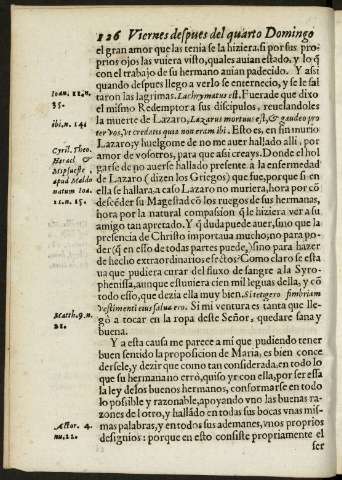 126 Viernes despues del quarto Domingo
el gran amor que las tenia se la hiziera. si por sus pro-
prios ojos las vuiera visto, quales auian estado, y lo q̃
con el trabajo de su hermano auian padecido. Y assi
quando despues llego a verlo se enternecio, y se le sal
taron las lagrimas. Lachrymatus est. Fuera de que dixo
Ioan. 11. n.
35.
el mismo Redemptor a sus discipulos, reuelandoles
la muerte de Lazaro, Lazarus mortuus est, & gaudeo pro
ibi, n. 14.
pter vos, vt credatis quia non eram ibi. Esto es, en fin murio
Lazaro, y huelgome de no me auer hallado alli, por
amor de vosotros, para que assi creays. Donde el hol
Cyril. Theo.
Heracl. &
garse de no auerse hallado presente a la enfermedad
Mopsueste,
de Lazaro (dizen los Griegos) que fue, porque si en
apud Maldo
natum Ioa.
ella se hallara, a caso Lazaro no muriera, hora por cõ
11. n. 15.
descẽder su Magestad cõ los ruegos de sus hermanas,
hora por la natural compasion q̃ le hiziera ver a su
amigo tan apretado. Y q̃ duda puede auer, sino que la
presencia de Christo importaua mucho; no para po-
der (q̃ en esso de todas partes puede,) sino para hazer
de hecho extraordinarios efectos? Como claro se esta
ua que pudiera curar del fluxo de sangre a la Syro-
phenissa, aunque estuuiera cien mil leguas della, y cõ
todo esso, que dezia ella muy bien. Si tetigero fimbriam
vestimenti eius salua ero. Si mi ventura es tanta que lle-
Matth. 9. n.
21.
gò a tocar en la ropa deste Señor, quedare sana y
buena.
Y a esta causa me parece a mi que pudiendo tener
buen sentido la proposicion de Maria, es bien conce
dersele, y dezir que como tan considerada, en todo lo
que su hermana no errò, quiso yr con ella, por ser essa
la ley de los buenos hermanos, conformarse en todo
lo possible y razonable, apoyando vno las buenas ra-
zones del otro, y hallãdo en todas sus bocas vnas mis-
mas palabras, y en todos sus ademanes, vnos proprios
Actor. 4.
nu. 32.
designios: porque en esto consiste propriamente el
ser